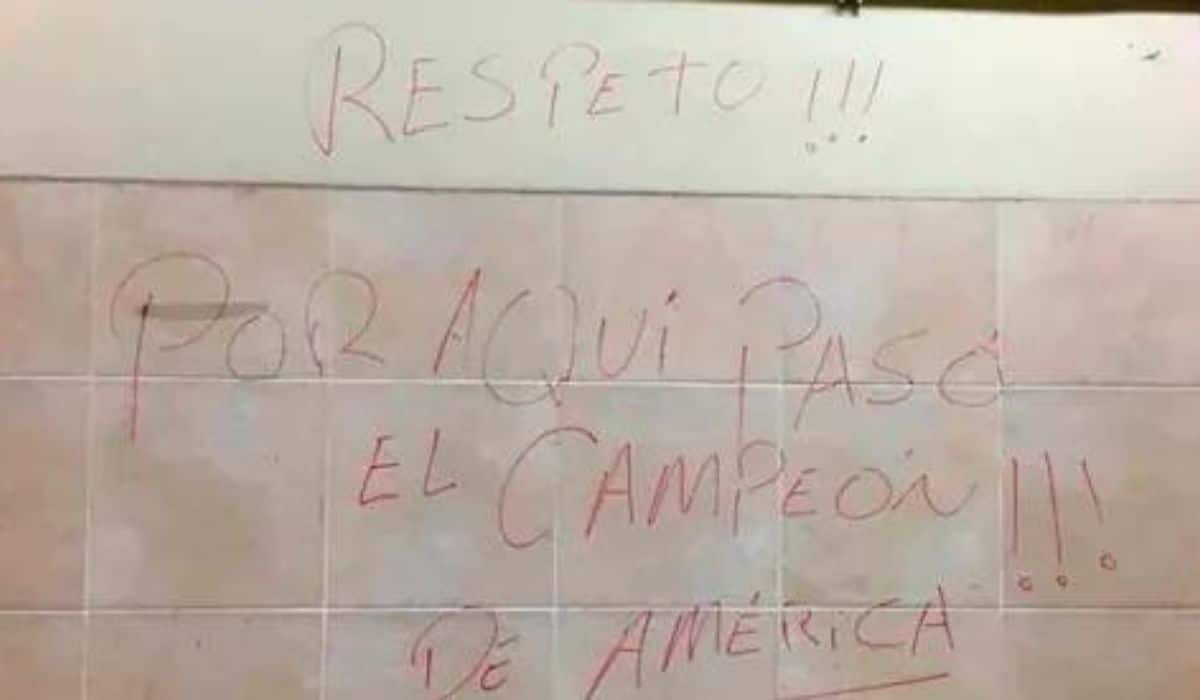 RESPETO!!!
POR AQUi PASÓ
EL CAMPEÓN!!!
DE AMÉRiCA